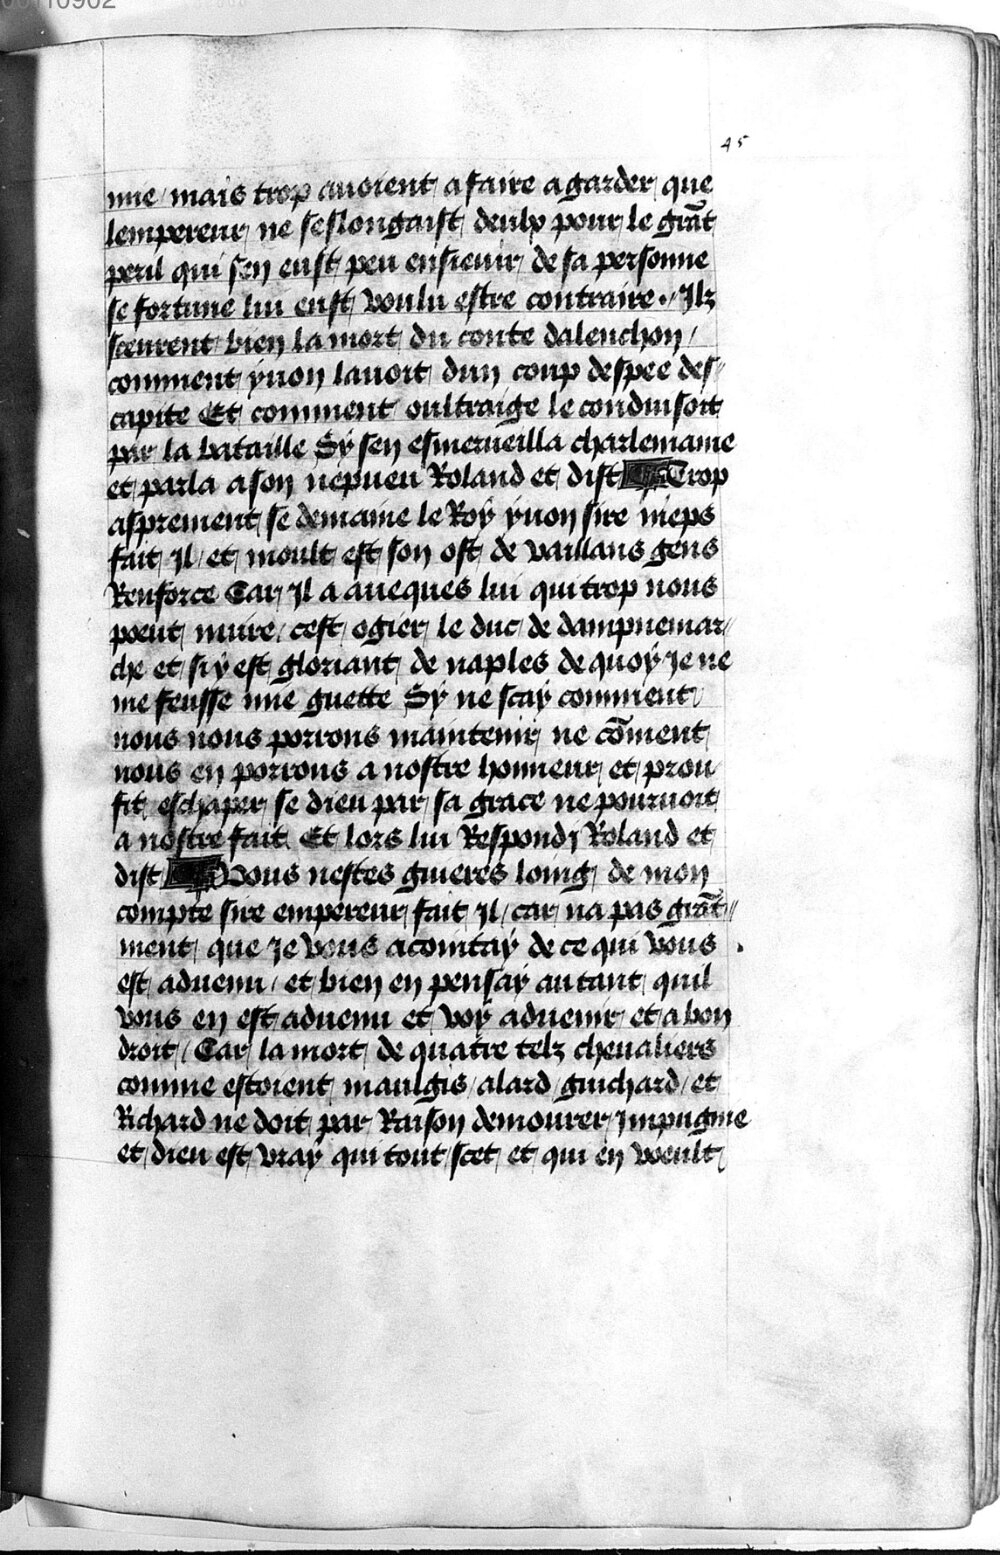 45
mie / mais trop auoient a faire a garder que
lempereur ne seslongaist deulx pour le grāt
peril qui sen eust peu ensieuir de sa personne
se fortune lui eust voulu estre contraire. Ilz
sceurent bien la mort du conte dalenchon /
comment yuon lauoit dun coup despee des/
capite Et comment oultraige le conduisoit
par la bataille Sy sen esmerueilla charlemaine
et parla a son nepueu Roland et dist Trop
asprement se demaine le Roy yuon sire nieps
fait Il / et moult est son ost de vaillans gens
Renforce Car Il a aueques lui qui trop nous
poeut nuire / cest ogier le duc de dampnemar/
che et si y est gloriant de naples de quoy Je ne
me feusse mie guette Sy ne scay comment
nous nous porrons maintenir ne cōment
nous en porrons a nostre honneur et prou
fit eschaper se dieu par sa grace ne pouruoit
a nostre fait Et lors lui Respondi Roland et
dist Vous nestes guieres loing de mon
compte sire empereur fait Il / car na pas grāt//
ment que Je vous acointay de ce qui vous
est aduenu / et bien en pensay autant quil
vous en est aduenu et voy aduenir et a bon
droit / Car la mort de quatre telz cheualiers
comme estoient maulgis / alard / guichard / et
Richard ne doit par Raison demourer Impugnie
et dieu est vray qui tout scet et qui en voeult